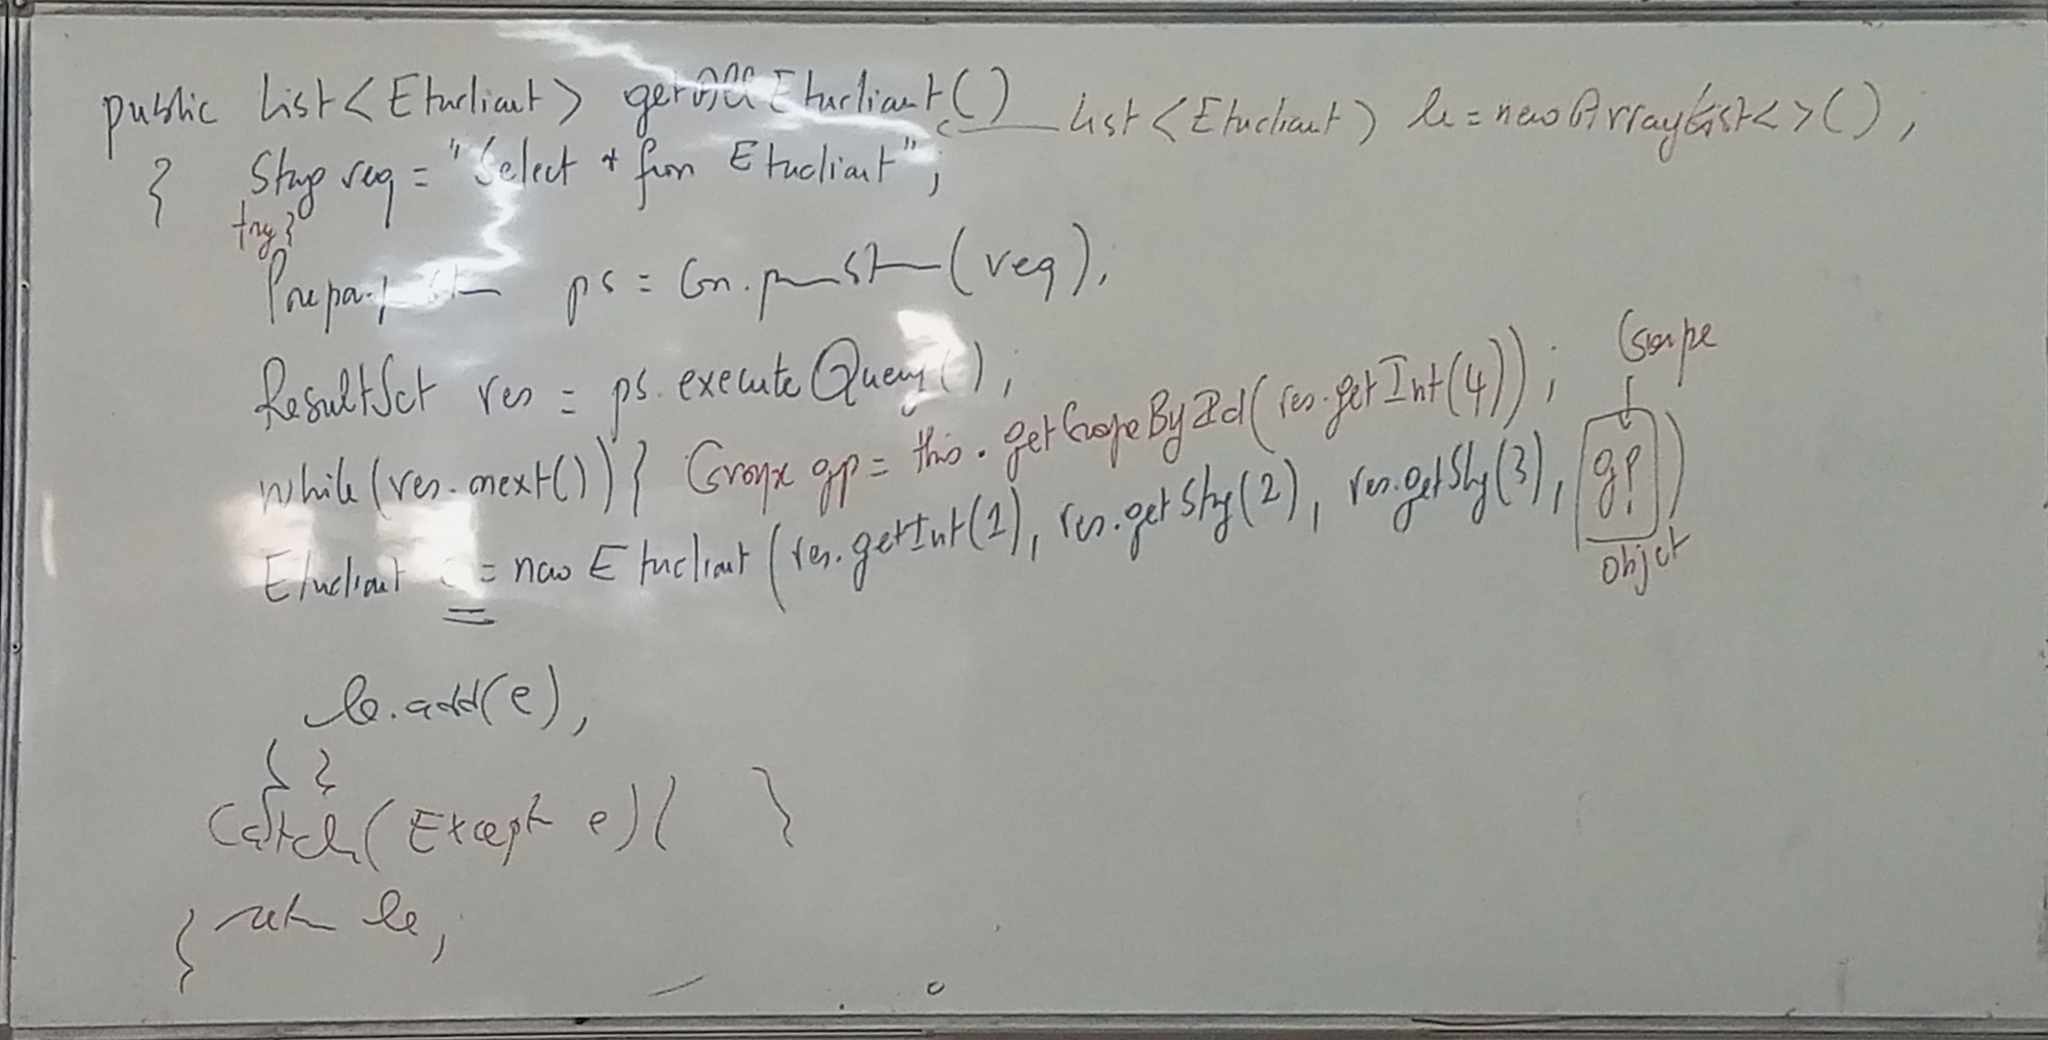 public List<Etudiant> getAllEtudiant() List<Etudiant> le = new ArrayList<>();
{ String req = "Select * from Etudiant";
try{
ps = Con. (req);
ResultSet res = ps.executeQuery();
Groupe
while(res.next()){ Groupe gp = this.getGroupeById(res.getInt(4));
Etudiant e = new Etudiant(res.getInt(1), res.getString(2), res.getString(3), gp))
Objet
le.add(e);
} }
Catch(Exception e){ }
} return le;